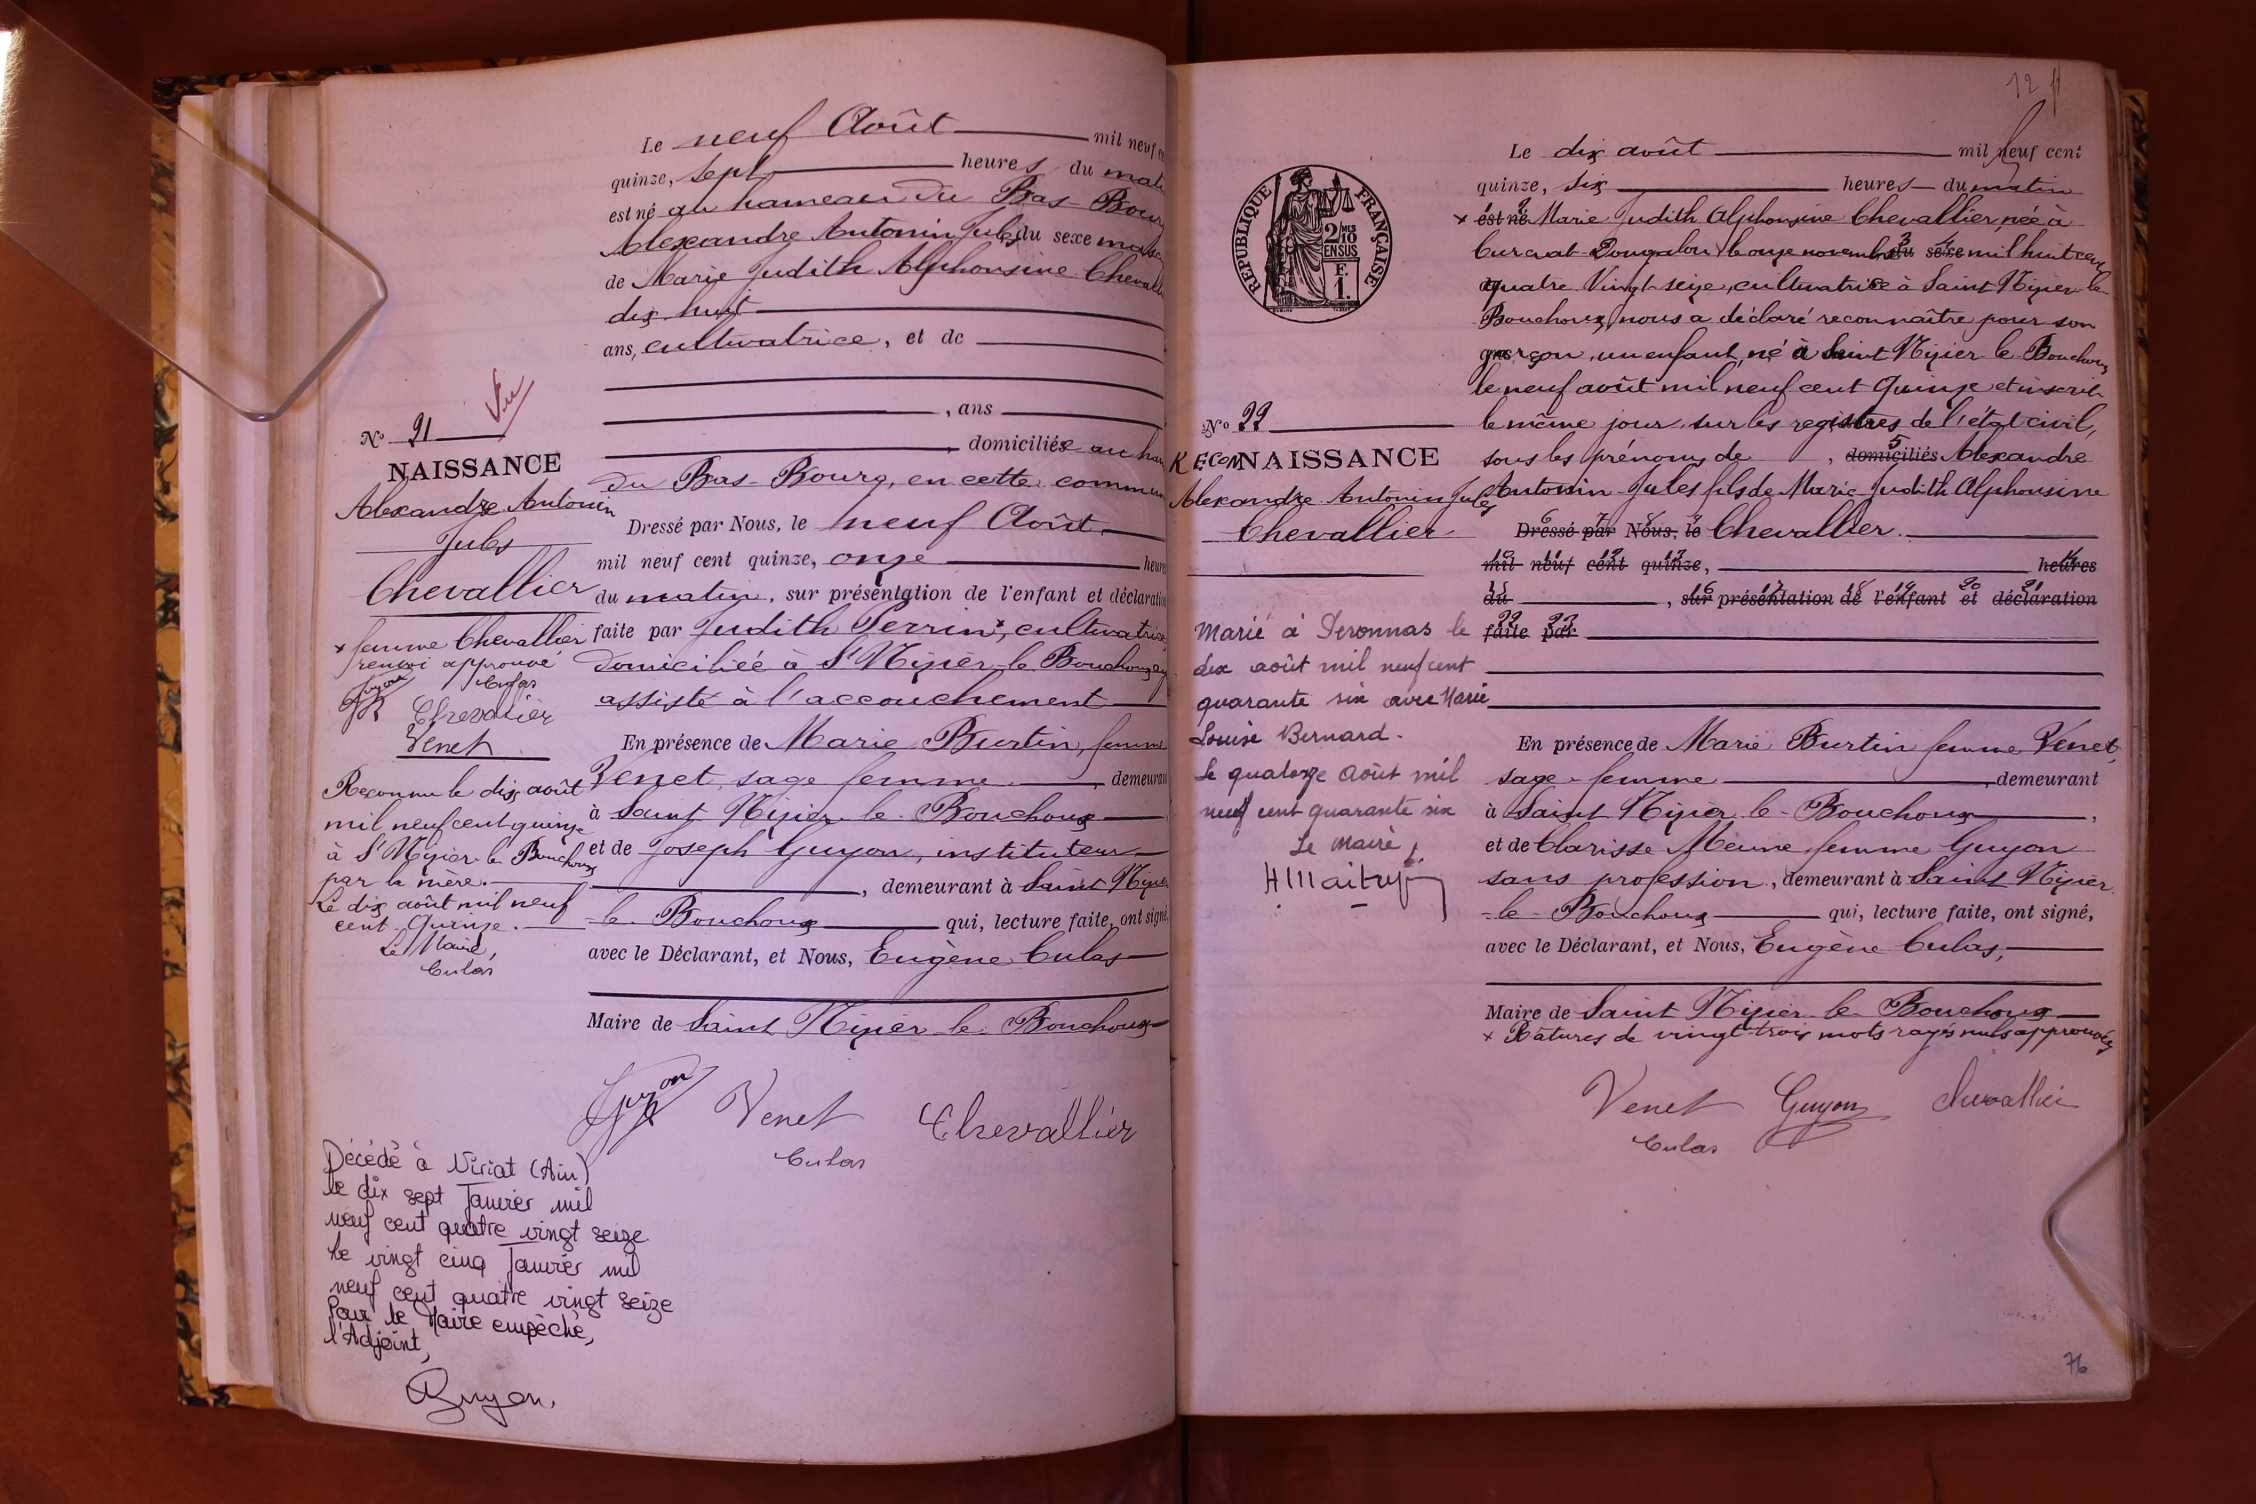 Le neuf Août mil neuf ce
quinze, sept heures du mati
est né au hameau du Bas-Bourg
Alexandre Antonin Jules du sexe mascu
de Marie Judith Alphonsine Chevalli
dix-huit
ans, cultivatrice, et de
, ans
, domiciliée au ham
du Bas-Bourg, en cette commun
Dressé par Nous, le neuf Août
mil neuf cent quinze, onze heure
du matin, sur présentation de l'enfant et déclaration
faite par Judith Perrin x, cultivatrice
domiciliée à St Nizier-le-Bouchoux ay
assisté à l'accouchement
En présence de Marie Burtin, femme
Venet, sage femme, demeurant
à Saint Nizier-le-Bouchoux
et de Joseph Guyon, instituteur
, demeurant à Saint Nizier
-le-Bouchoux qui, lecture faite, ont signé,
avec le Déclarant, et Nous, Eugène Culas
Maire de Saint Nizier-le-Bouchoux
Guyon Venet Chevallier
Culas
Vu
No 21
NAISSANCE
Alexandre Antonin
Jules
Chevallier
x femme Chevallier
renvoi approuvé
Guyon Culas
Chevallier
Venet
Reconnu le dix août
mil neuf cent quinze
à St Nizier-le-Bouchoux
par la mère.
Le dix août mil neuf
cent quinze.
Le Maire,
Culas
Décédé à Viriat (Ain)
le dix sept Janvier mil
neuf cent quatre vingt seize
Le vingt cinq Janvier mil
neuf cent quatre vingt seize
Pour le Maire empêché,
l'Adjoint,
Guyon.
12
RÉPUBLIQUE FRANÇAISE
2/10 EN SUS
F.
1.
No 22
RECONNAISSANCE
Alexandre Antonin Jules
Chevallier
Marié à Péronnas le
dix août mil neuf cent
quarante six avec Marie
Louise Bernard.
Le quatorze Août mil
neuf cent quarante six
Le Maire,
Le dix août mil neuf cent
quinze, dix heures du matin
x est né Marie Judith Alphonsine Chevallier, née à
Curciat-Dongalon, le onze novembre du sexe mil huit cent
quatre vingt-seize, cultivatrice à Saint Nizier-le-
Bouchoux, nous a déclaré reconnaître pour son
garçon, un enfant, né à Saint Nizier-le-Bouchoux
le neuf août mil neuf cent quinze et inscrit
le même jour, sur les registres de l'état civil,
sous les prénoms de , domiciliés Alexandre
Antonin Jules fils de Marie Judith Alphonsine
Dressé par Nous, le Chevallier.
mil neuf cent quinze, heures
du , sur présentation de l'enfant et déclaration
faite par
En présence de Marie Burtin femme Venet,
sage-femme, demeurant
à Saint Nizier-le-Bouchoux,
et de Clarisse Meune femme Guyon
sans profession, demeurant à Saint Nizier
-le-Bouchoux qui, lecture faite, ont signé,
avec le Déclarant, et Nous, Eugène Culas,
Maire de Saint Nizier-le-Bouchoux
x Ratures de vingt-trois mots rayés nuls approuvées
Venet Guyon Chevallier
Culas
76